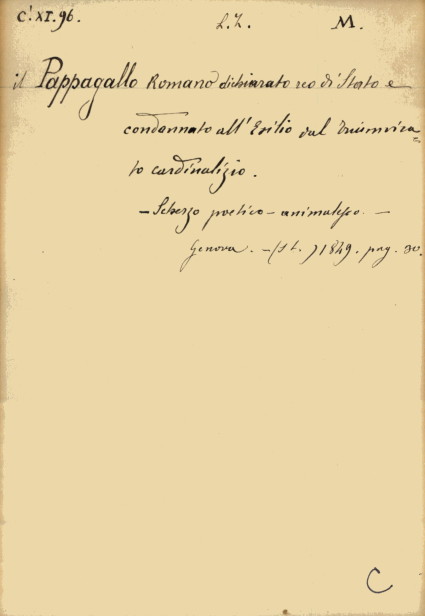 C¹. XI. 96. L. L. M.
il Pappagallo Romano dichiarato reo di Stato e
condannato all'Esilio dal Triumvira=
to cardinalizio.
— Scherzo poetico — animalesco. —
Genova. — (s t. ) 1849. pag. 30.
C